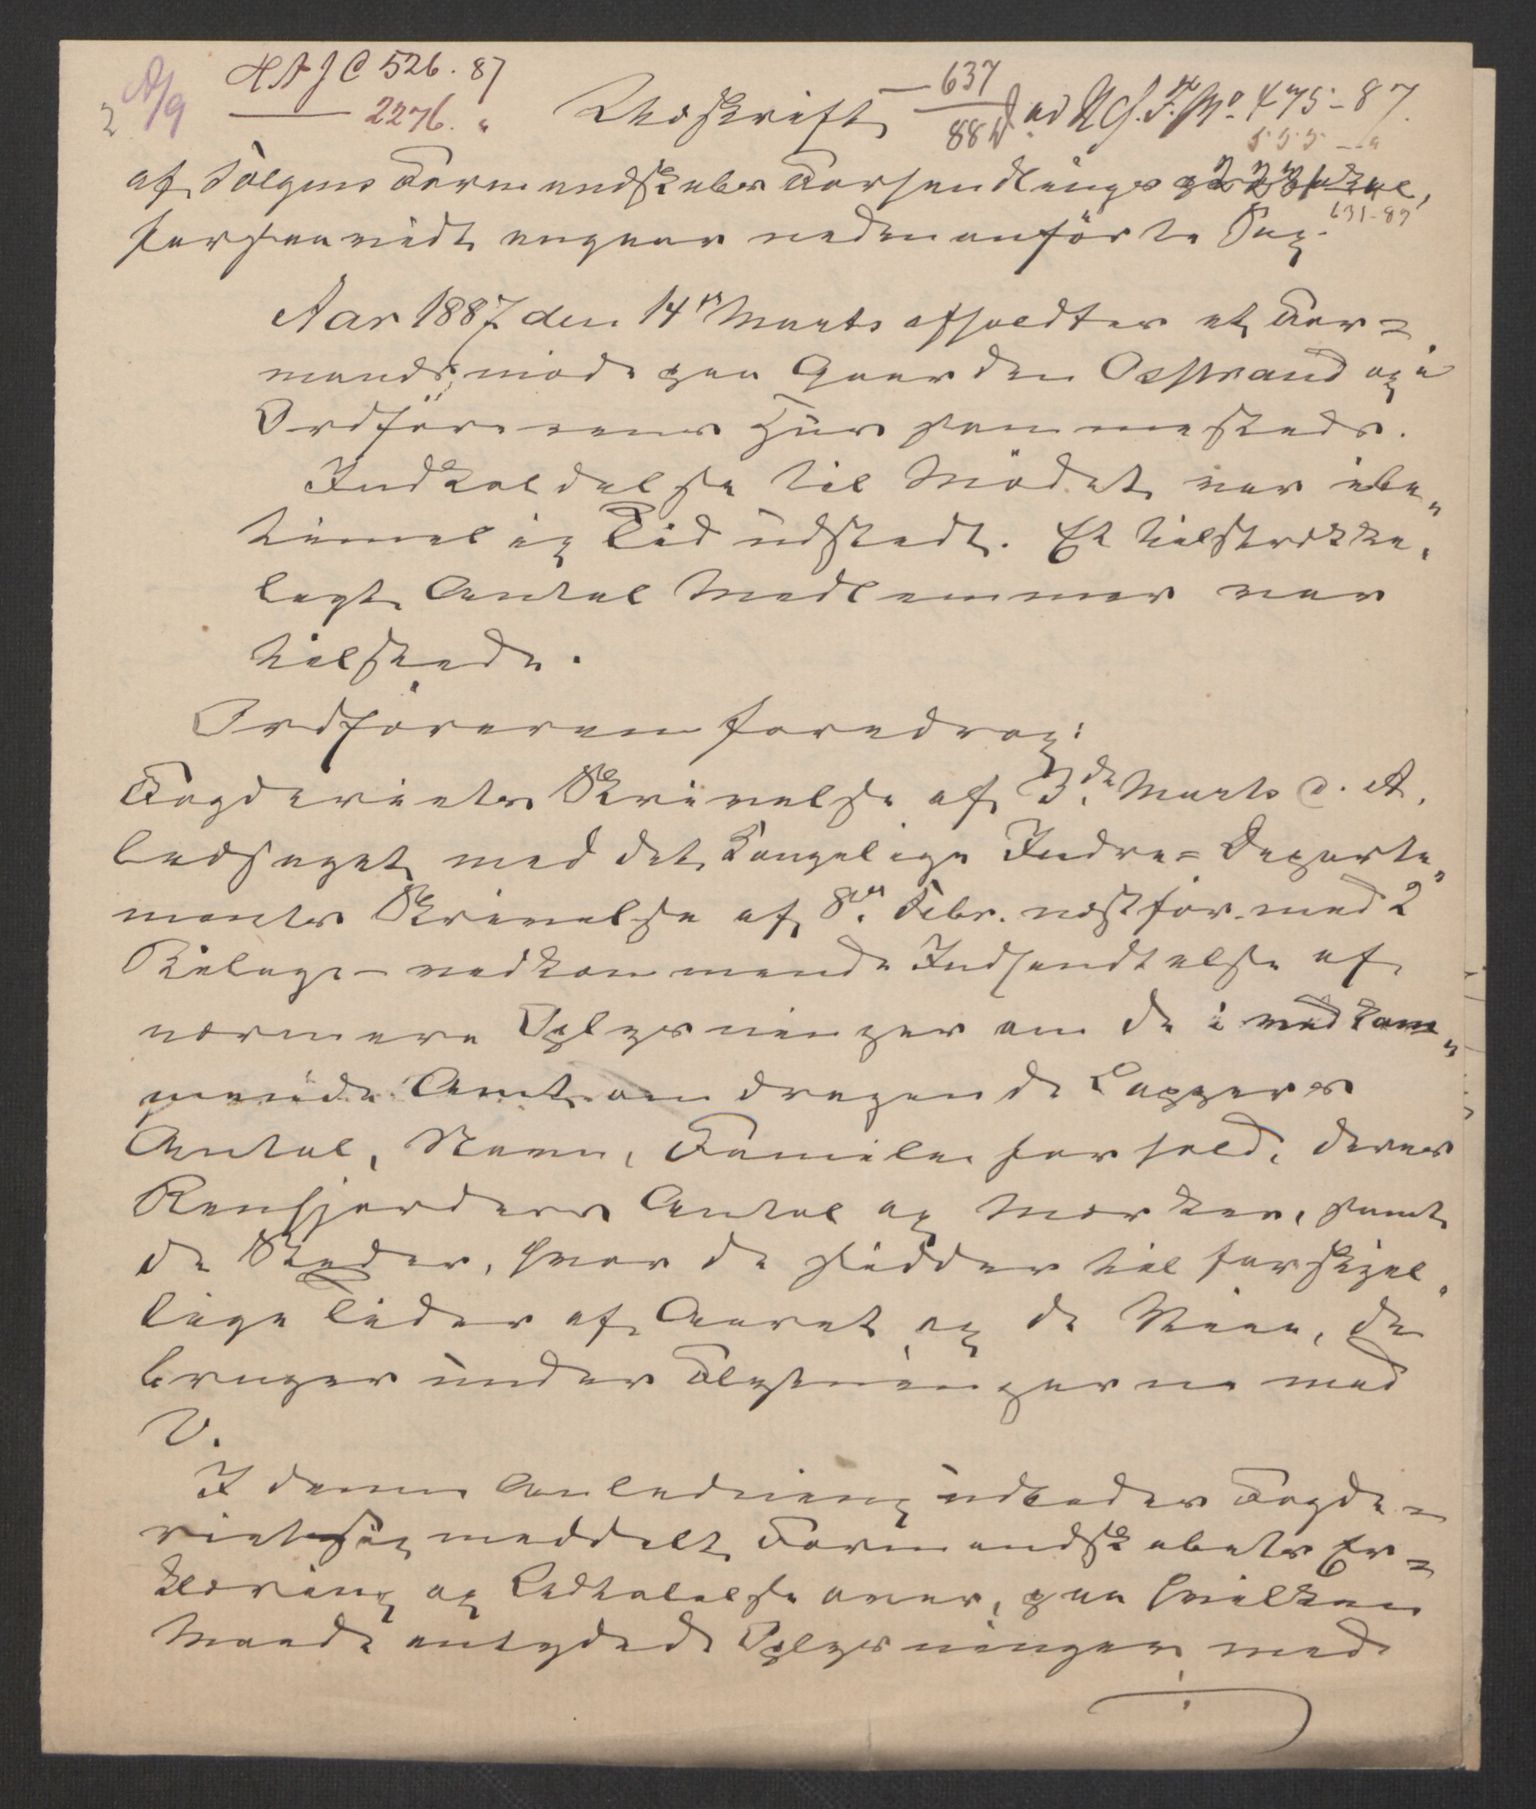 H A J C 526. 87
A/9 2276. "
2
Udskrift
637
88 D. ad J. No 475-87.
555 - "
631-87
af Tolgens Formandskabs Forhandlingsprotokol,
forsaavidt angaar nedenanførte Sag.
Aar 1887 den 14de Marts afholdtes et For=
mandsmøde paa Gaarden Osstrand og i
Ordførerens Hus sammesteds.
Indkaldelse til Mødet var i be„
timelig Tid udstedt. Et tilstrække„
ligt Antal Medlemmer var
tilstede.
Ordføreren foredrog:
Fogderiets Skrivelse af 3de Marts d. A.
ledsaget med det Kongelige Indre=Departe„
ments Skrivelse af 8de Febr. næstfør. med 2
Bilage – vedkommende Indhentelse af
nærmere Oplysninger om de i vedkom„
mende Amt omdragende Lappers
Antal, Navn, Familieforhold, deres
Renhjorders Antal og Mærker, samt
de Steder, hvor de sidder til forskjel„
lige Tider af Aaret og de Veie, de
bruger under Flytningerne med
V.
I denne Anledning udbeder Fogde=
riet sig meddelt Formandskabets Er=
klæring og Udtalelse over, paa hvilken
Maade antydede Oplysninger med